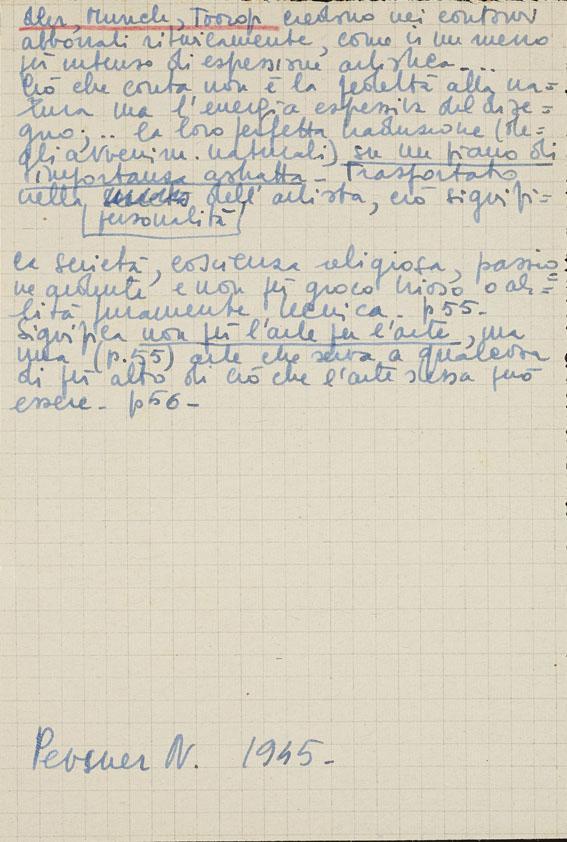 Munch, Toorop credono nei contorni
abbozzati ritmicamente, come in un mezzo
più intenso di espressione artistica....
Ciò che conta non è la fedeltà alla na=
tura ma l'energia espressiva del dise=
gno;.. la loro perfetta traduzione (de=
gli avvenim. naturali) su un piano di
importanza astratta - Trasportato
nella dell'artista, ciò signifi=
personalità
ca serietà, coscienza religiosa, passio
ne ardente e non più gioco ozioso o abi=
lità puramente tecnica. p55-
Significa non più l'arte per l'arte, ma
una (p.55) arte che serva a qualcosa
di più alto di ciò che l'arte stessa può
essere - p56-
Pevsner N. 1945-